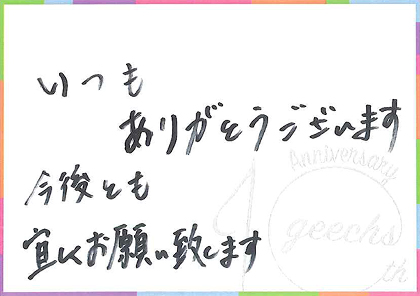 いつも
ありがとうございます
今後とも
宜しくお願い致します
Anniversary
10
geechs
th